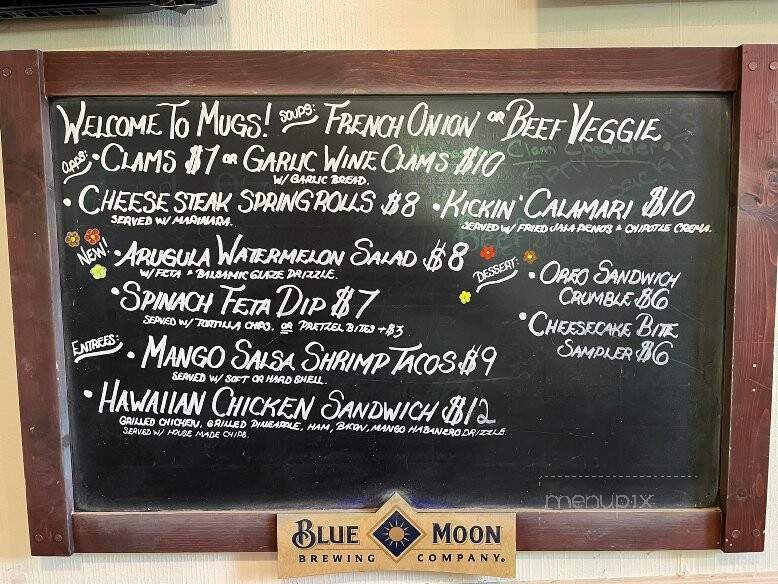 WELCOME TO MUGS! SOUPS: FRENCH ONION OR BEEF VEGGIE
APPS: • CLAMS $7 OR GARLIC WINE CLAMS $10
W/ GARLIC BREAD.
• CHEESE STEAK SPRING ROLLS $8 • KICKIN' CALAMARI $10
SERVED W/ MARINARA. SERVED W/ FRIED JALAPENOS & CHIPOTLE CREMA.
NEW! • ARUGULA WATERMELON SALAD $8
W/ FETA & BALSAMIC GLAZE DRIZZLE.
• SPINACH FETA DIP $7
SERVED W/ TORTILLA CHIPS. OR PRETZEL BITES +$3
DESSERT: • OREO SANDWICH
CRUMBLE $6
• CHEESECAKE BITE
SAMPLER $6
ENTREES: • MANGO SALSA SHRIMP TACOS $9
SERVED W/ SOFT OR HARD SHELL.
• HAWAIIAN CHICKEN SANDWICH $12
GRILLED CHICKEN, GRILLED PINEAPPLE, HAM, BACON, MANGO HABANERO DRIZZLE.
SERVED W/ HOUSE MADE CHIPS.
menupix
BLUE MOON
BREWING COMPANY.